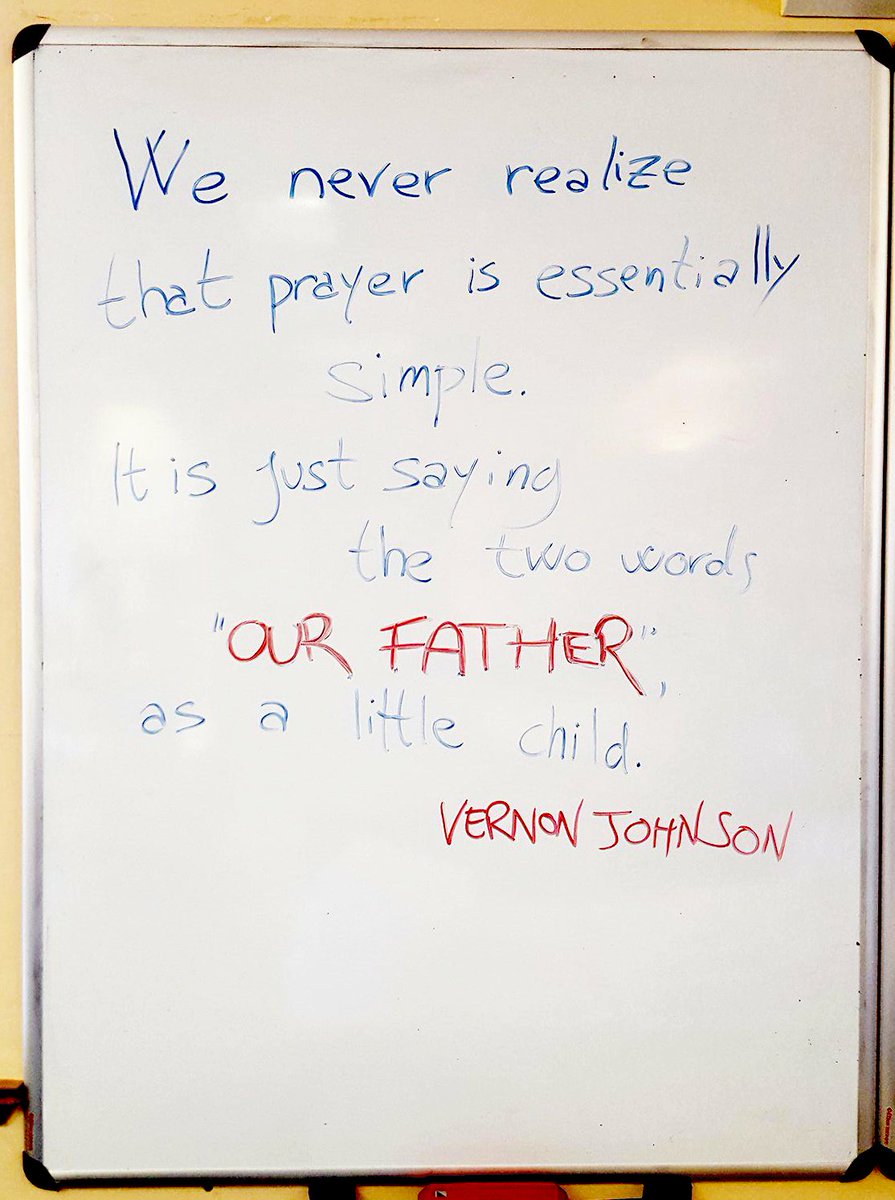 We never realize
that prayer is essentially
simple.
It is just saying
the two words
"OUR FATHER",
as a little child.
VERNON JOHNSON